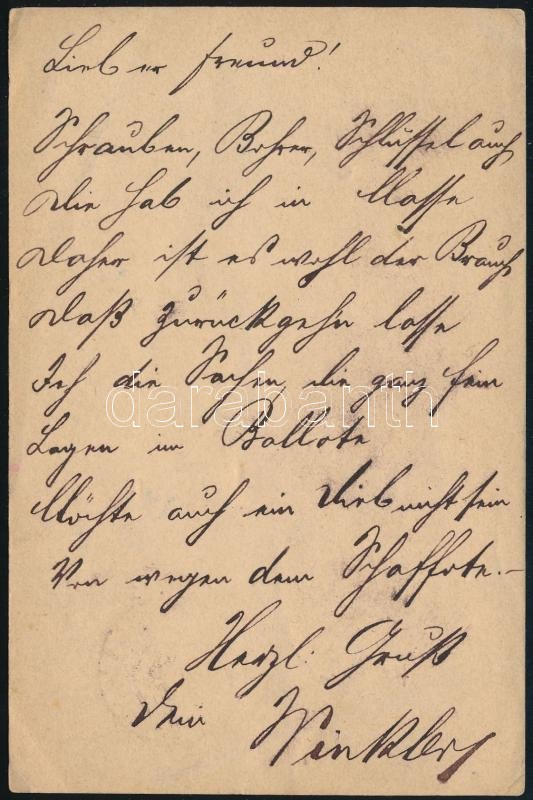 Lieber Freund!
Schrauben, Bohrer, Schlüssel auch
Die hab ich in Masse
Daher ist es wohl der Brauch
Daß zurückgehn lasse
Ich die Sachen, die ganz fein
Lagen im Ballote
darabanth
Möchte auch ein Dieb nicht sein
Von wegen dem Schaffote.–
Herzl. Gruß
Dein Winkler